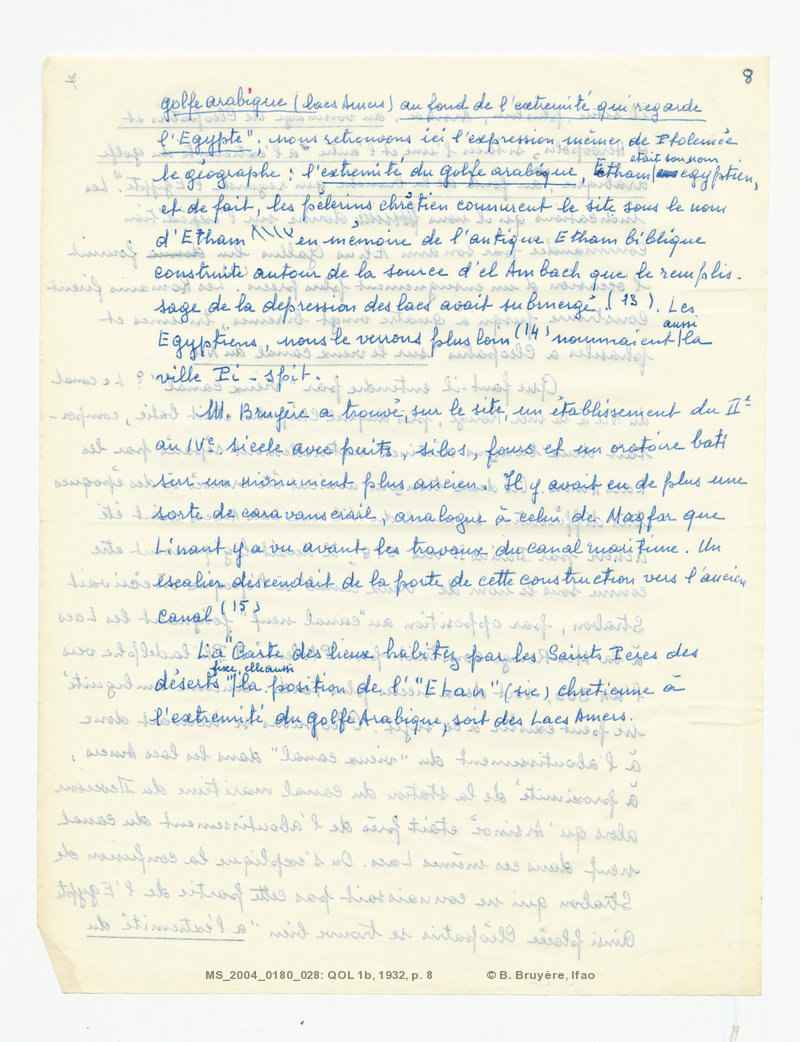 8
golfe arabique (lacs Amers) au fond de l'extremité qui regarde
l'Egypte". nous retrouvons ici l'expression même, de Ptolemée
le géographe : l'extremité du golfe arabique, Etham était son nom egyptien,
et de fait, les pèlerins chrétien connurent le site sous le nom
d'Etham en mémoire de l'antique Etham biblique
construite autour de la source d'el Ambach que le remplis-
sage de la depression des lacs avait submergé. (13). Les
Egyptiens, nous le verrons plus loin (14) nommaient aussi la
ville Pi-Spit.
M. Bruyère a trouvé, sur le site, un établissement du IIe
au IVe siecle avec puits, silos, fours et un oratoire bati
sur un monument plus ancien. Il y avait eu de plus une
sorte de caravanserail, analogue à celui de Magfar que
Linant y a vu avant les travaux du canal maritime. Un
escalier descendait de la porte de cette construction vers l'ancien
canal (15)
La "Carte des lieux habitez par les Saints Peres des
déserts" fixe, elle aussi la position de l'"Etain" (sic) chretienne à
l'extremité du golfe Arabique, soit des Lacs Amers.
MS_2004_0180_028: QOL 1b, 1932, p. 8 © B. Bruyère, Ifao